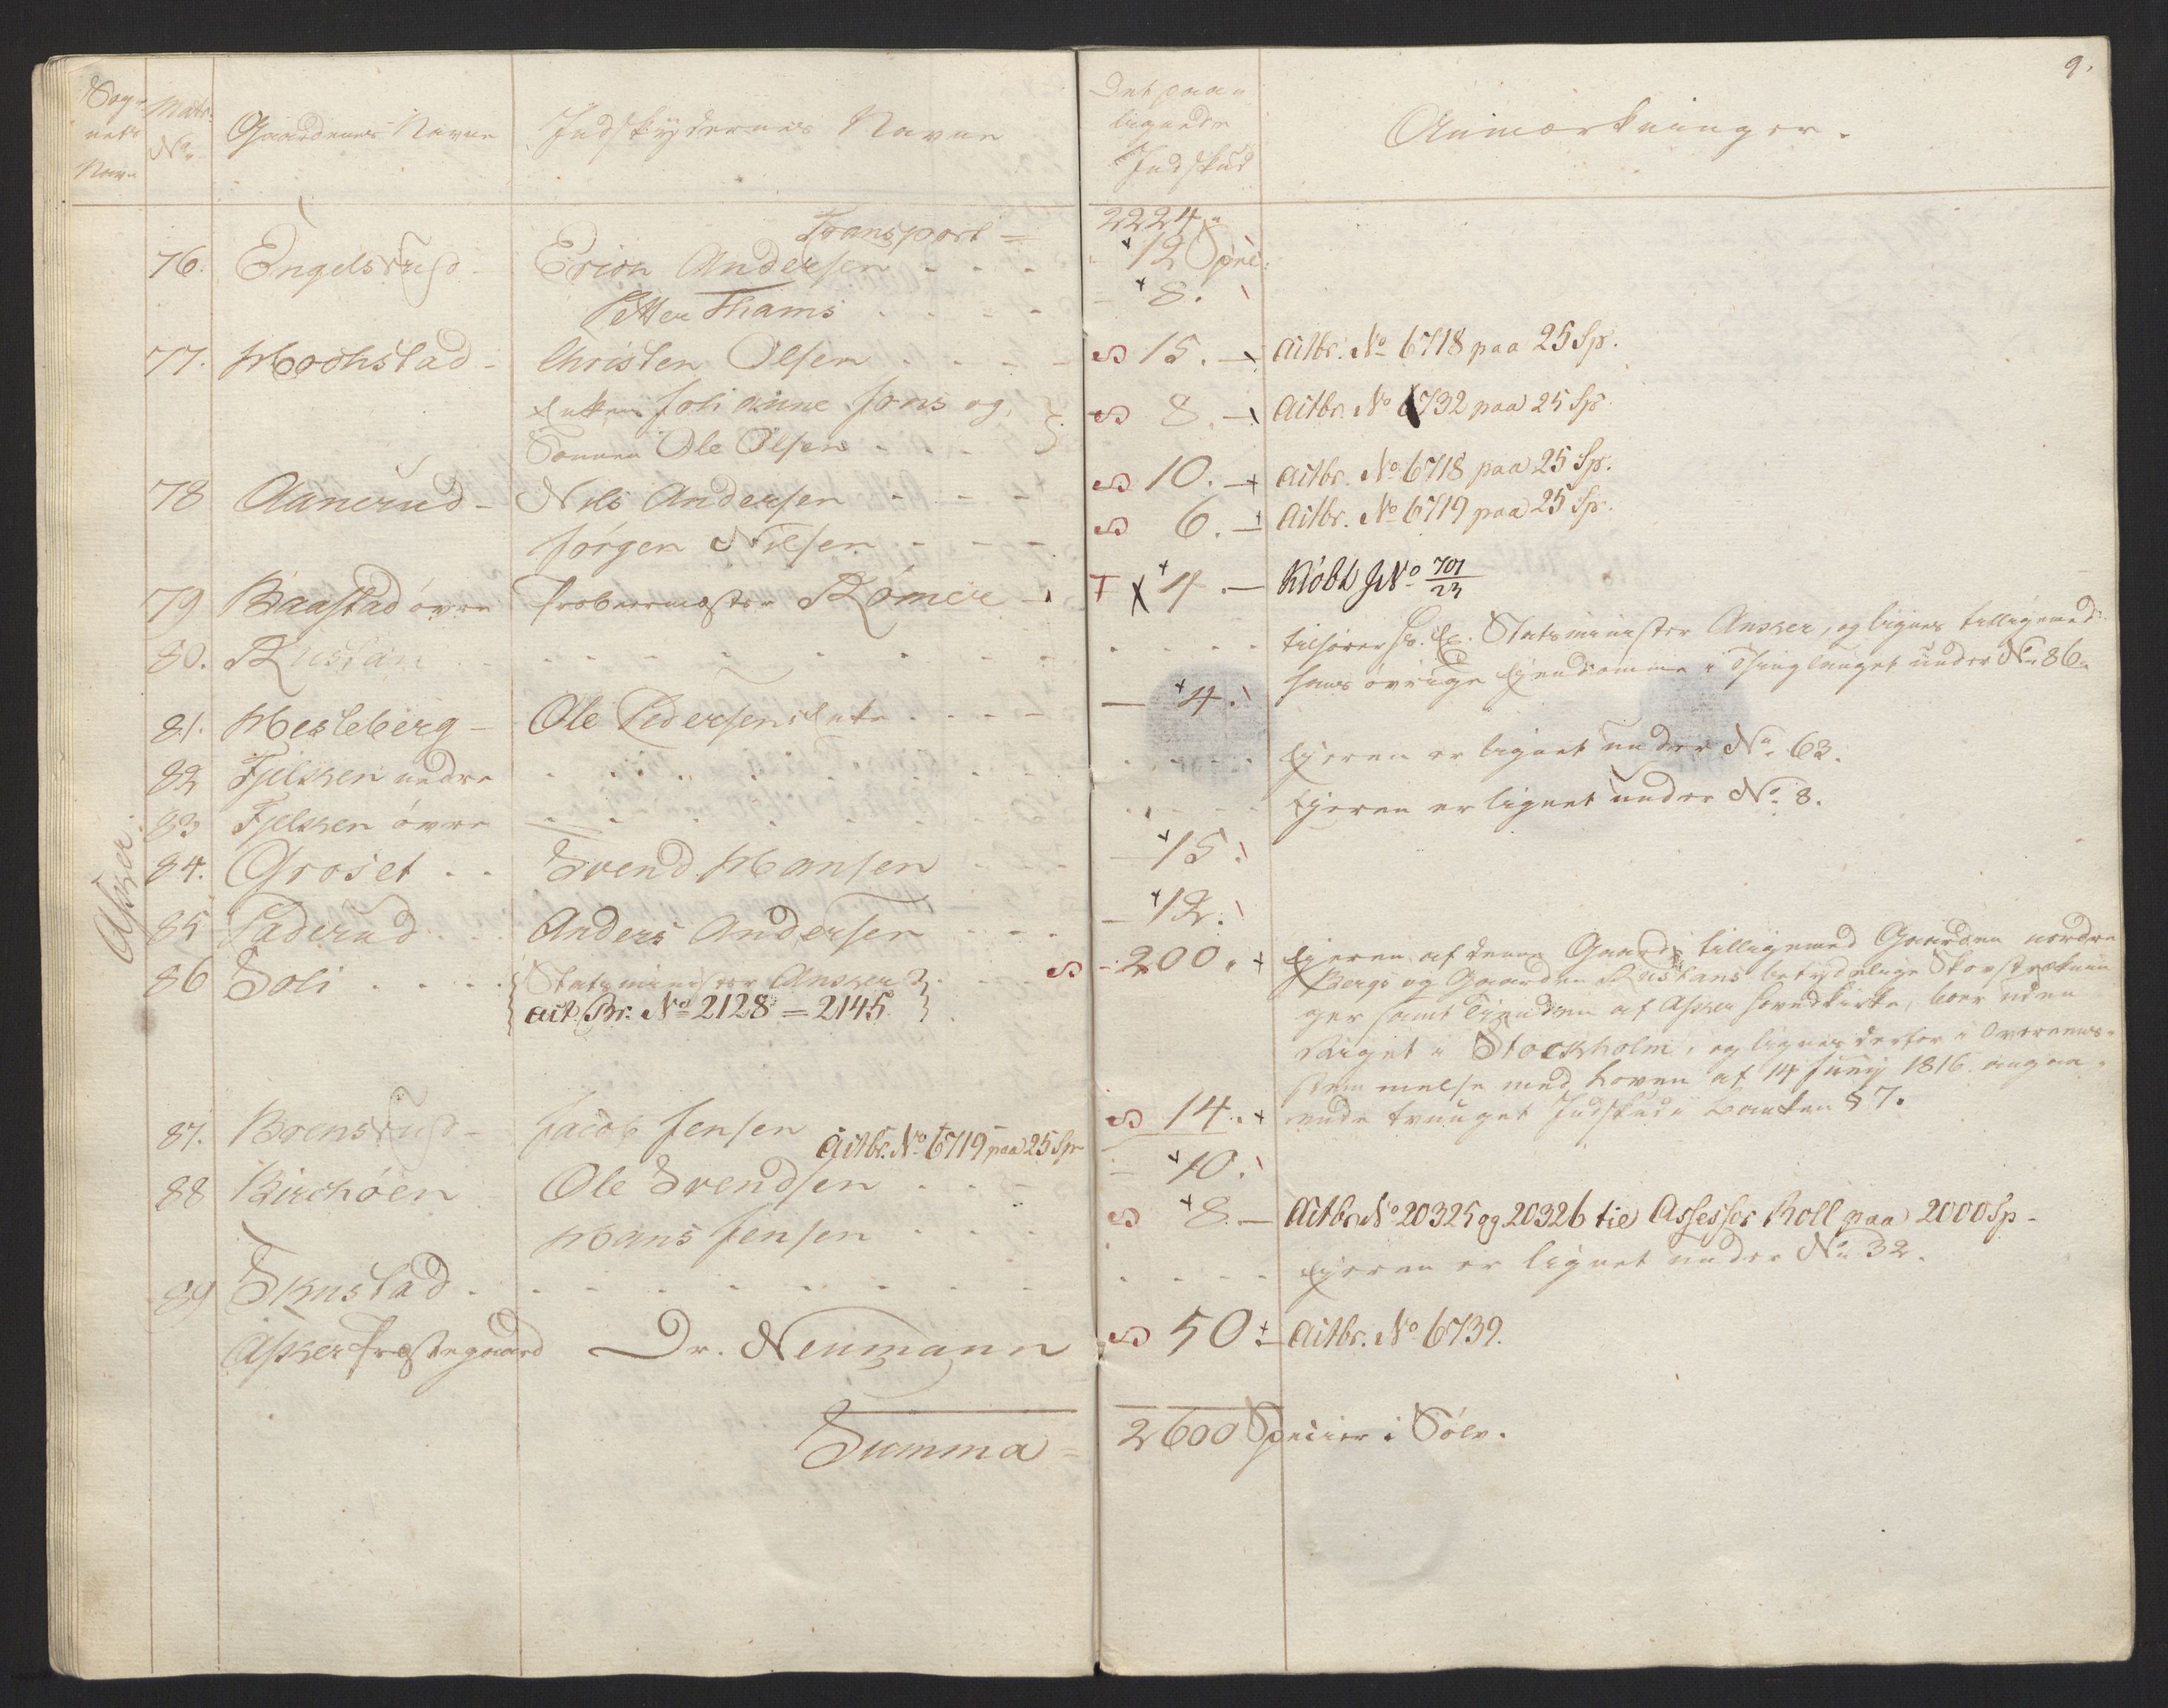 9.
Sog-
nets
Navn
Matr.
No
Gaardenes Navne
Indskydernes Navne
Det paa-
lignede
Indskud
Anmærkninger.
Transport = 2224
76. Engelsrud - Erich Andersen - - - 12 Spec:
Petter Thams - - - 8.
77. Hochstad - Christen Olsen - - - S 15. - Actbr. No 6718 paa 25 Sp.
Enken Johanne Jons og
Sønnen Ole Olsen - - - } S 8. - Actbr. No 6732 paa 25 Sp.
78 Aanerud - Nils Andersen - - - S 10. - Actbr. No 6718 paa 25 Sp.
Jørgen Nilsen - - - S 6. - Actbr. No 6719 paa 25 Sp.
79 Baastad øvre Probermester Rømer - T X 4. - Kiøbt J No 701/23
80. Rustan - - - tilhører Hr. Ex. Statsminister Ancker, og lignes tilligemed
hans øvrige Ejendomme i Thinglauget under No 86.
81. Hesleberg - Ole Pedersens Enke - - - 4.
82 Fjelsken nedre - - - Ejeren er lignet under No 63.
83 Fjelsken øvre - - - Ejeren er lignet under No 8.
Asker.
84. Groset - - Svend Hansen - - - 15.
85 Paderud - - Anders Andersen - - - 12.
86 Soli - - - { Statsminister Ancker } S - 200.
Act. Br. No 2128 = 2145
Ejeren af denne Gaard, tilligemed Gaarden nordre
Berg og Gaarden Rustans betydelige Skovstræknin
ger samt Tienden af Asker Hovedkirke, boer uden
Riget i Stockholm, og lignes derfor i Overeens-
stemmelse med Loven af 14 Junij 1816 angaa-
ende tvunget Indskud i Banken § 7.
87. Brensrud - Jacob Jensen Actbr. No 6719 paa 25 Sp S 14.
88 Birchøen Ole Svendsen - - - 10.
Hans Jensen - - - S 8. - Actbr No 20325 og 20326 til Assessor Roll paa 2000 Sp -
89 Skustad - - - Ejeren er lignet under No 32.
Asker Præstegaard Dr. Neumann S 50 - Actbr. No 6739.
Summa = 2600 Specier i Sølv.